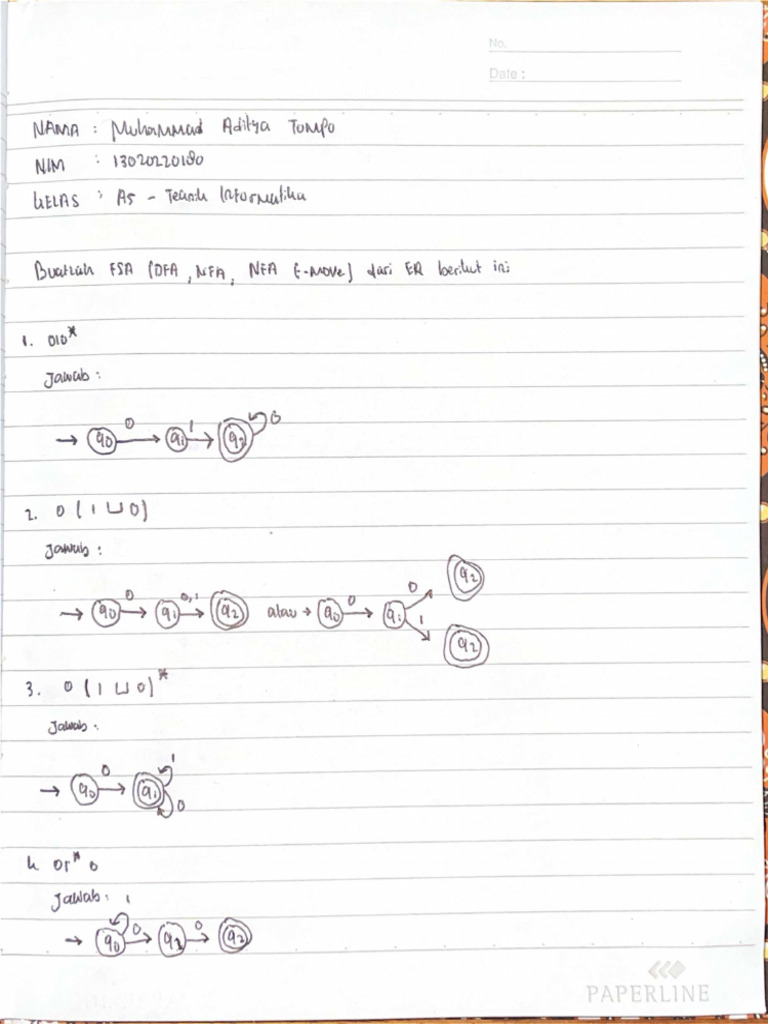 No.
Date :
NAMA : Muhammad Aditya Tompo
NIM : 13020220180
KELAS : A5 - Teknik Informatika
Buatlah FSA (DFA, NFA, NFA E-move) dari ER berikut ini
1. 010*
Jawab :
→ q0 0 → q1 1 → q2 0
2. 0 (1 ⊔ 0)
Jawab :
→ q0 0 → q1 0,1 → q2 atau → q0 0 → q1 0 q2 1 q2
3. 0 (1 ⊔ 0)*
Jawab :
→ q0 0 → q1 1 0
4. 01* 0
Jawab :
→ q0 1 0 → q1 0 → q2
PAPERLINE